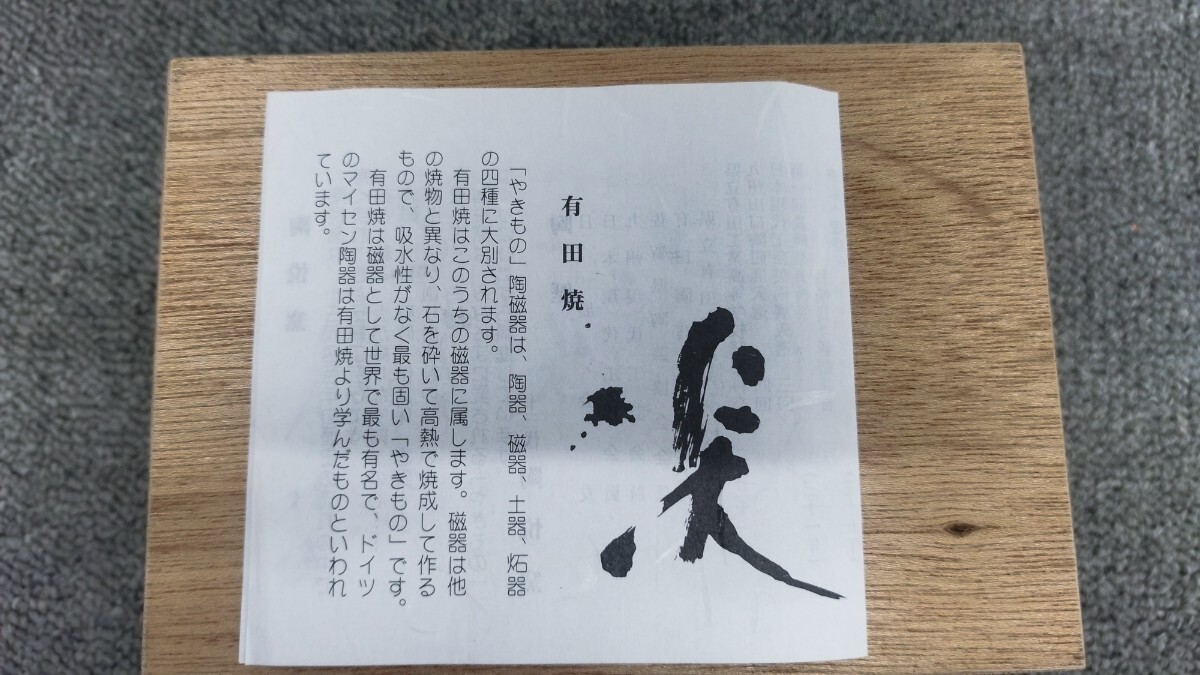 有田焼
「やきもの」陶磁器は、陶器、磁器、土器、炻器
の四種に大別されます。
有田焼はこのうちの磁器に属します。磁器は他
の焼物と異なり、石を砕いて高熱で焼成して作る
もので、吸水性がなく最も固い「やきもの」です。
有田焼は磁器として世界で最も有名で、ドイツ
のマイセン陶器は有田焼より学んだものといわれ
ています。